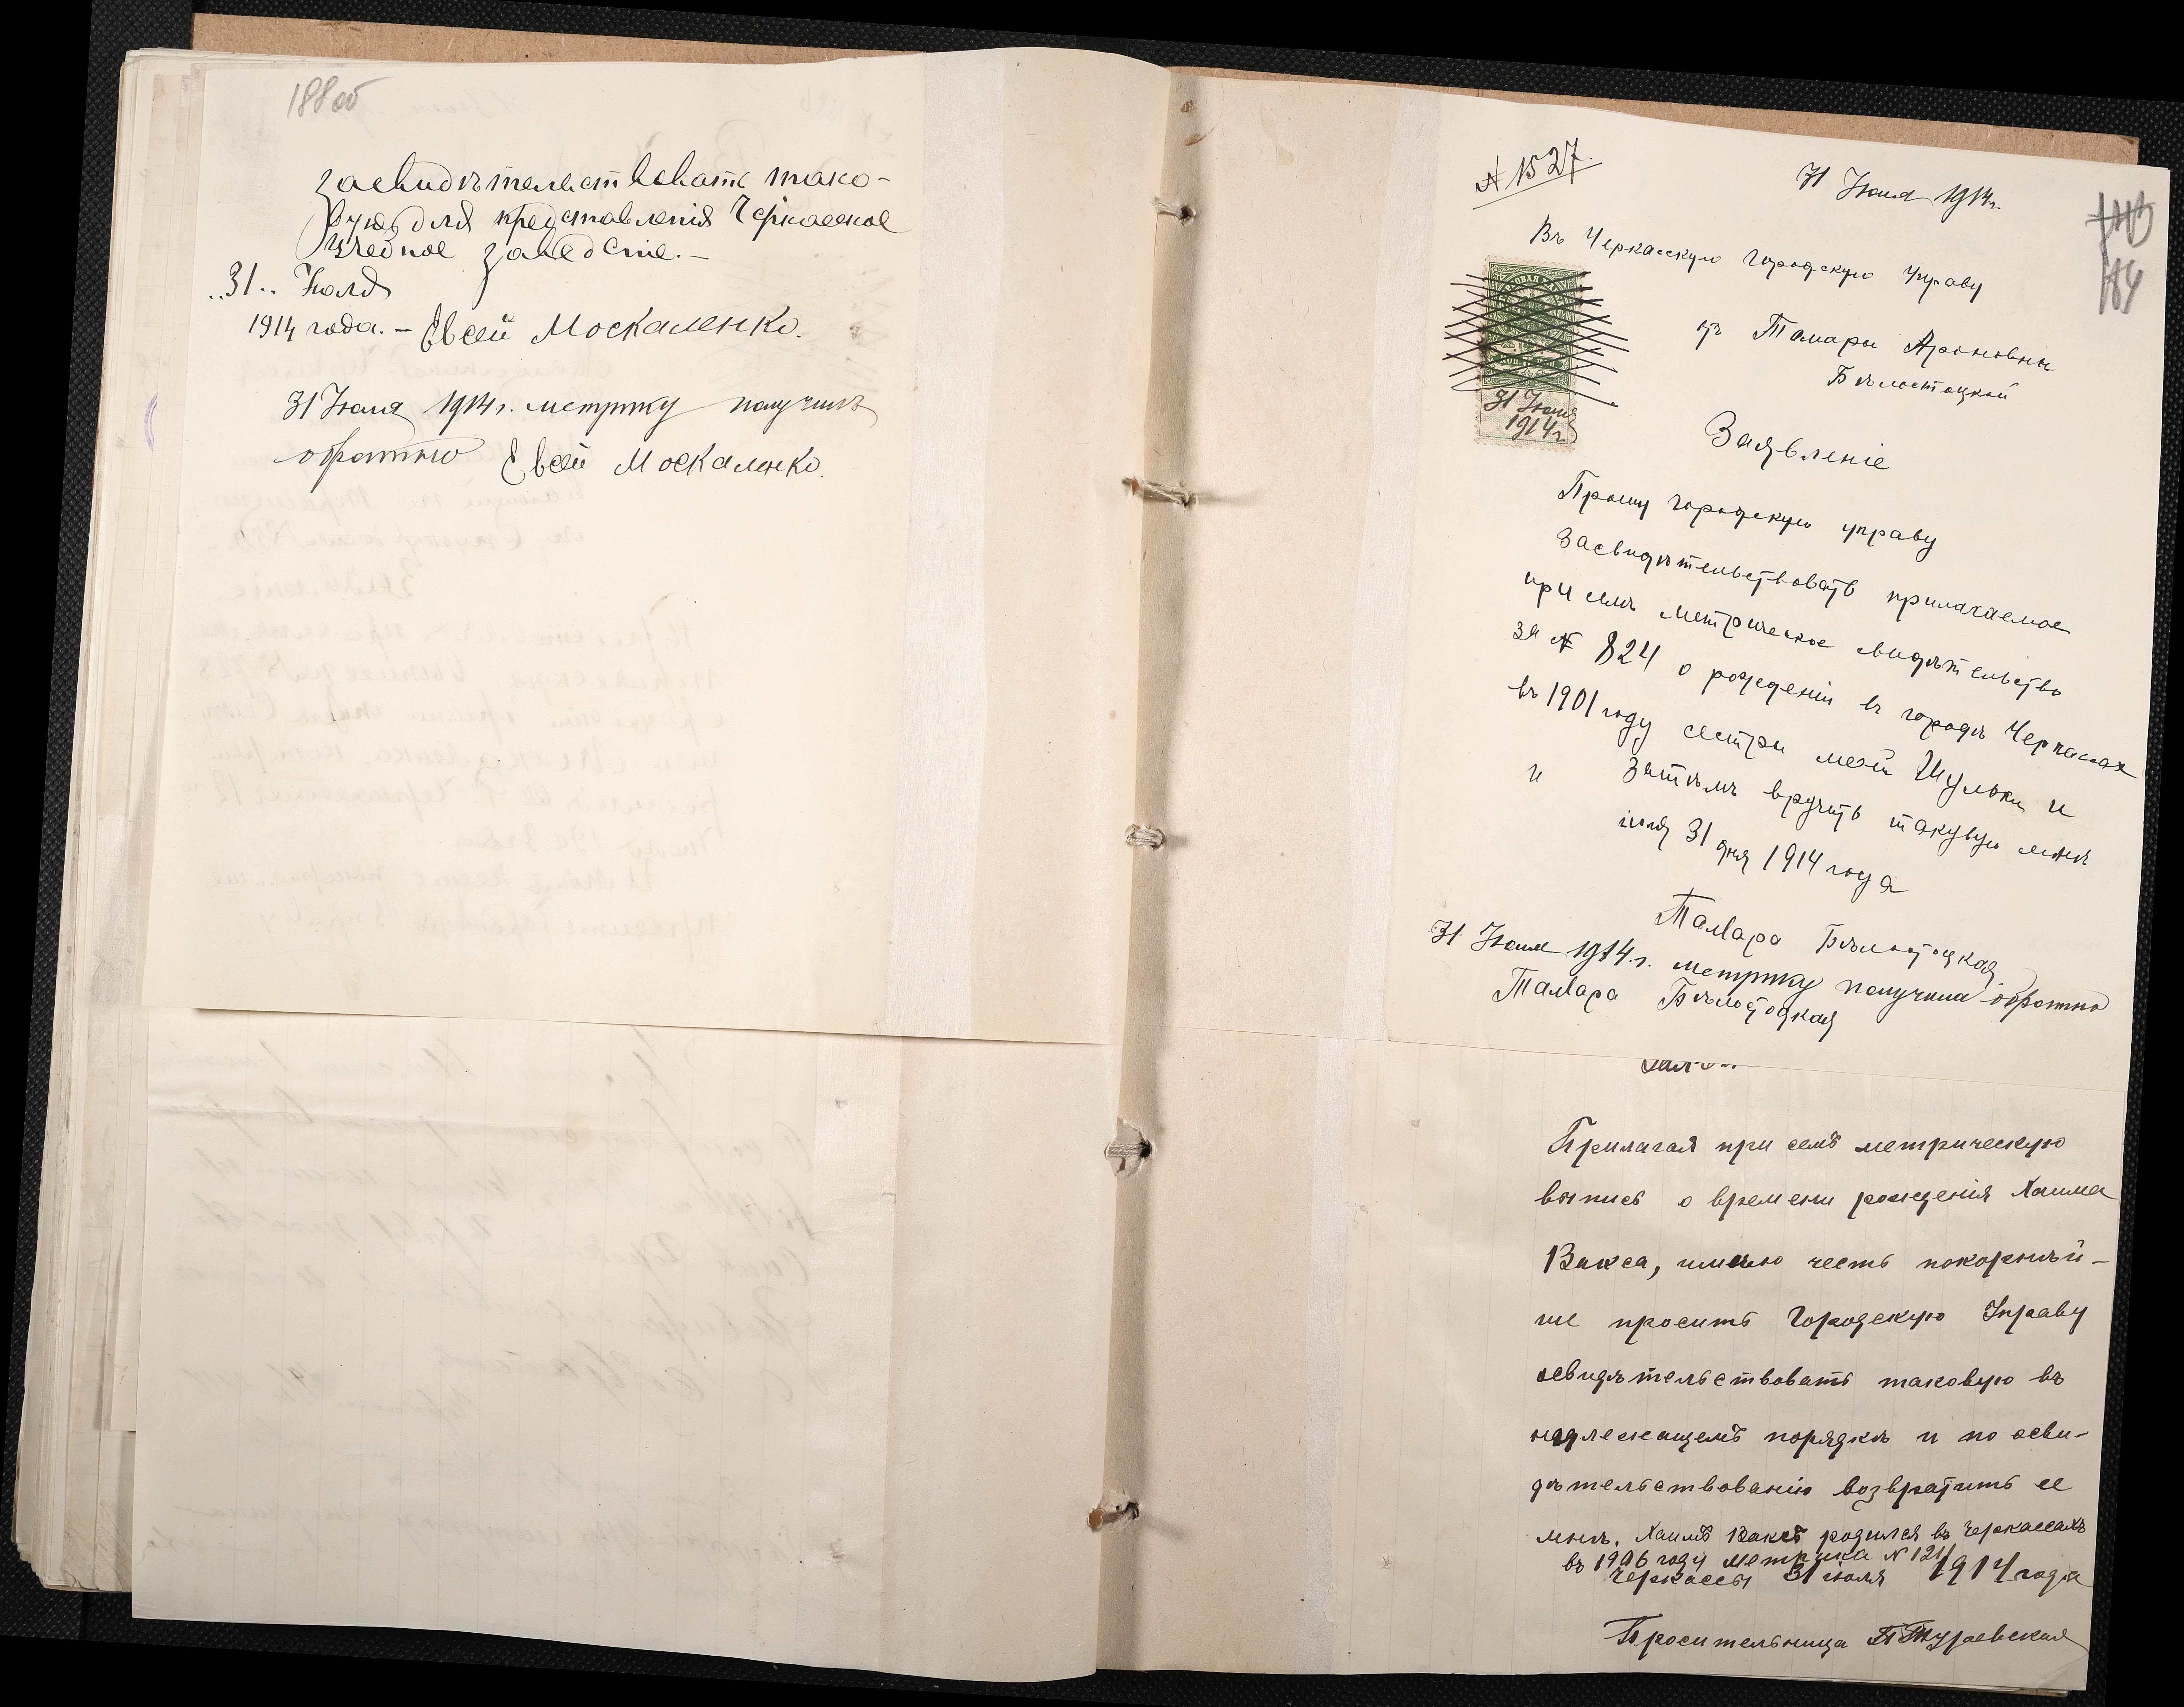 188об
засвидѣтельствовать тако-
вую для представленія Черкаское
учебное заведеніе. –
„31„ Іюля
1914 года. – Евсей Москаленко.
31 Іюля 1914 г. метрику получилъ
обратно Евсей Москаленко.
№ 1527.
31 Іюля 1914 г.
189
Въ Черкасскую городскую управу
отъ Тамары Ароновны
Бѣлостоцкой
31 Іюля
1914 г.
Заявленіе
Прошу городскую управу
засвидѣтельствовать прилагаемое
при семъ метрическое свидѣтельство
за № 824 о рожденіи въ городѣ Черкасах
въ 1901 году сестры моей Шульки и
и затѣмъ вручить таковую мнѣ
іюля 31 дня 1914 года
Тамара Бѣлостоцкая
31 Іюля 1914 г. метрику получила обратно
Тамара Бѣлостоцкая
Прилагая при семъ метрическую
выпись о времени рожденія Хаима
Вакса, имѣю честь покорнѣй-
ше просить Городскую Управу
освидѣтельствовать таковую въ
надлежащемъ порядкѣ и по осви-
дѣтельствованію возвратить ее
мнѣ. Хаимъ Ваксъ родился въ Черкассахъ
въ 1906 году метрика № 121
Черкассы 31 іюля 1914 года
Просительница